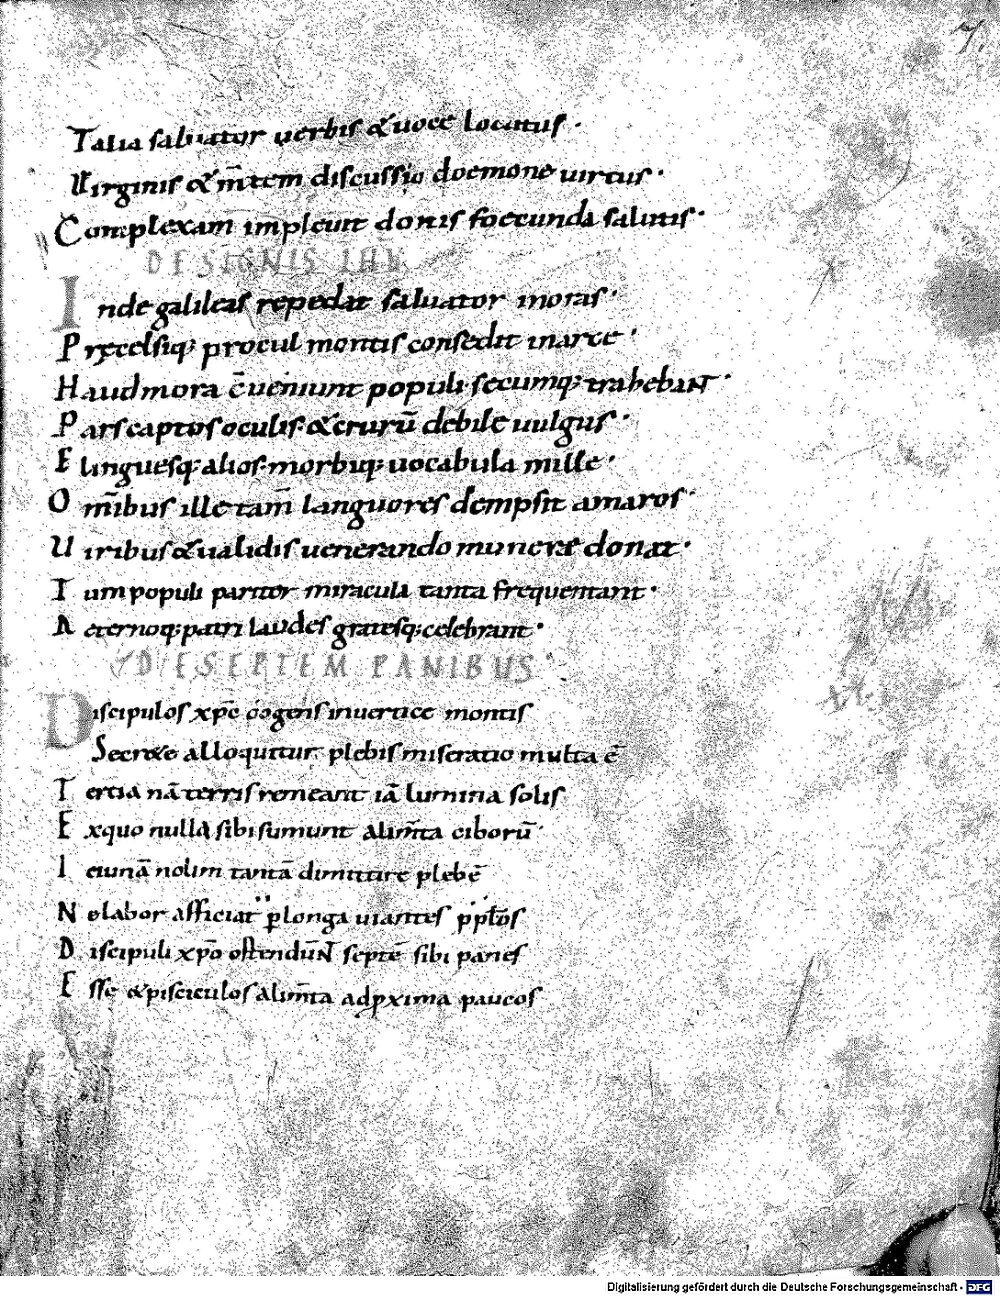 7.
Talia saluator uerbis & uoce locutus ·
Virginis & m̄tem discusso doemone uirtus ·
Complexam impleuit donis foecunda salutis ·
DE SIGNIS IHU
Inde galileas repedat saluator in oras ·
Pręcelsiq; procul montis consedit in arce ·
Haud mora c̄ueniunt populi secumq; trahebant ·
Pars captos oculis · & crurū debile uulgus ·
Elinguesq; alios · morbiq; uocabula mille ·
Om̄ibus ille tam̄ languores dempsit amaros ·
Uiribus & ualidis uenerando munere donat ·
Tum populi pariter miracula tanta frequentant ·
Aeternoq; patri laudes gratesq; celebrant ·
DE SEPTEM PANIBUS
Discipulos xp̄c cogens in uertice montis
Secrete alloquitur plebis miseratio multa ē
Tertia nā terris remeant iā lumina solis
Ex quo nulla sibi sumunt alim̄ta ciborū ·
Ieiunā nolim tantā dimittere plebē
Ne labor afficiat p̱longa uiantes pp̄los
Discipuli xp̄o ostendūN septē sibi panes
Esse & pisciculos alim̄ta ad pxima paucos
Digitalisierung gefördert durch die Deutsche Forschungsgemeinschaft - DFG